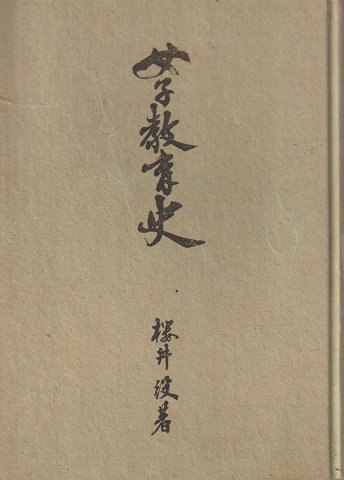 女子教育史
桜井役著